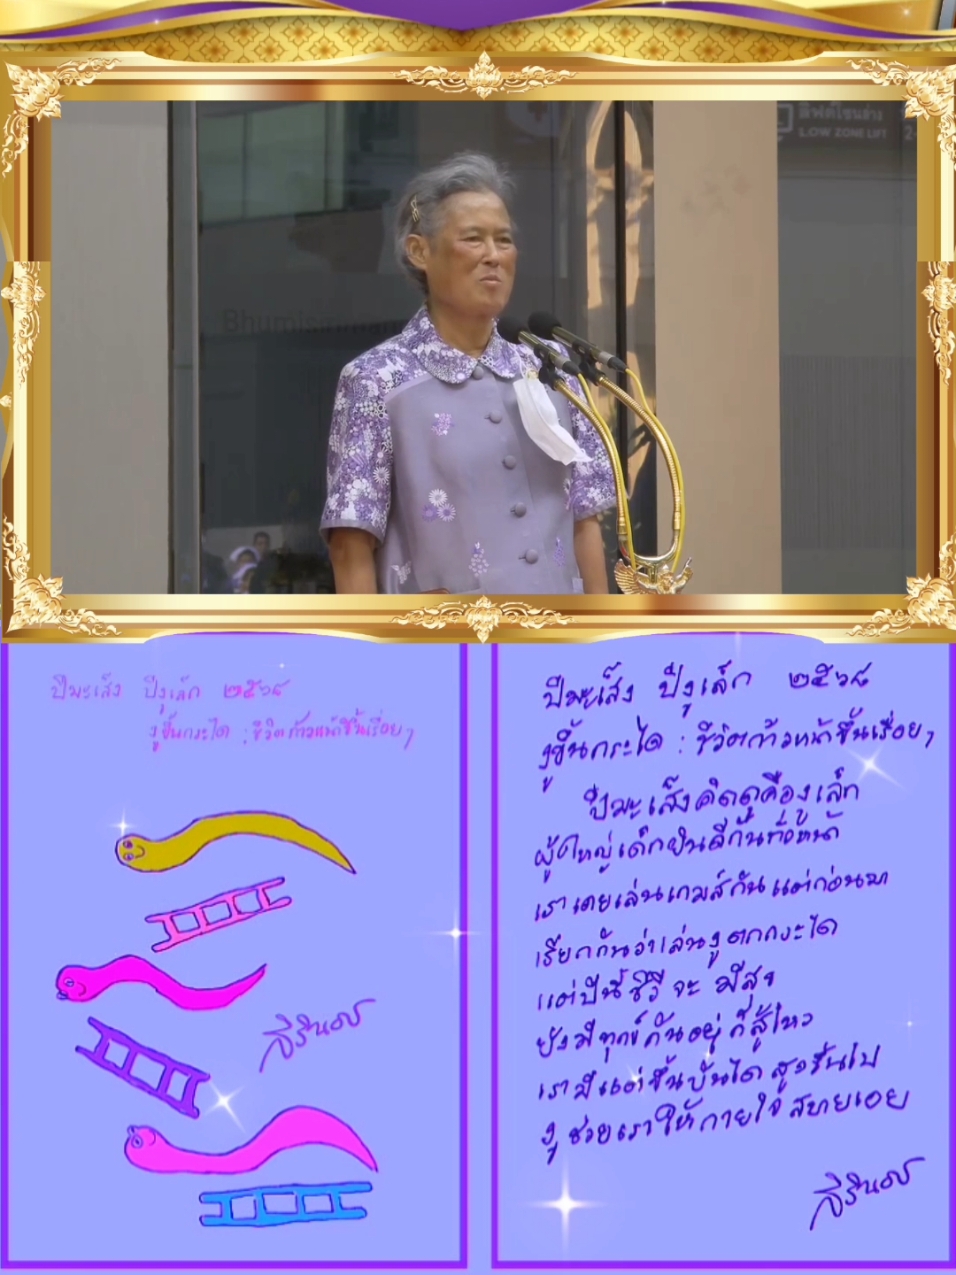 ลิฟต์โซนล่าง
LOW ZONE LIFT
ปีมะเส็ง ปีงูเล็ก ๒๕๖๘
งูขึ้นกระได : ชีวิตก้าวหน้าขึ้นเรื่อยๆ
สิรินธร
ปีมะเส็ง ปีงูเล็ก ๒๕๖๘
งูขึ้นกระได : ชีวิตก้าวหน้าขึ้นเรื่อยๆ
ปีมะเส็งคิดดูคืองูเล็ก
ผู้ใหญ่เด็กยินดีกันทั่วหน้า
เราเคยเล่นเกมส์กันแต่ก่อนมา
เรียกกันว่าเล่นงูตกกระได
แต่ปีนี้ชีวีจะมีสุข
ยังมีทุกข์กันอยู่ก็สู้ไหว
เรามีแต่ขึ้นบันไดสูงขึ้นไป
งูช่วยเราให้กายใจสบายเอย
สิรินธร